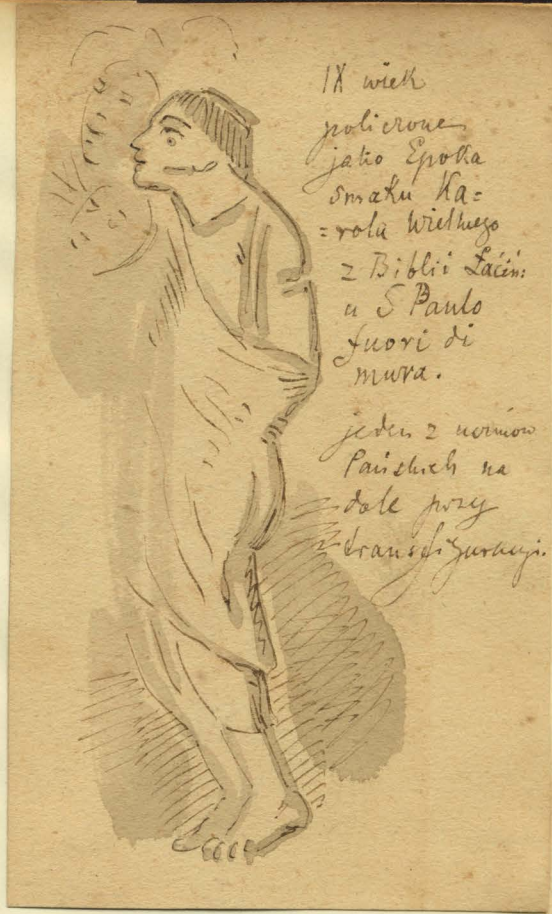 IX wiek
policzone
jako Epoka
smaku Ka=
=rola Wielkiego
z Biblii Łaciń:
u S Paulo
fuori di
mura.
jeden z uczniów
Pańskich na
dole przy
transfiguracyi.